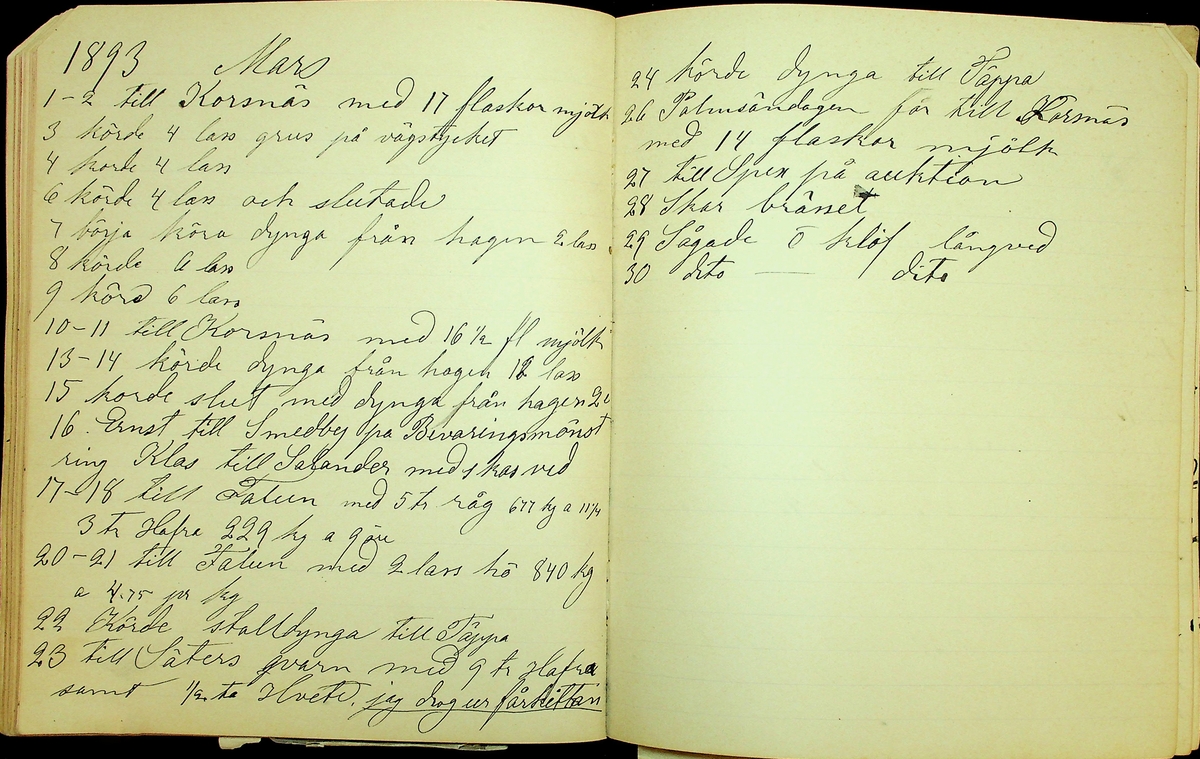 1893 Mars
1-2 till Korsnäs med 17 flaskor mjölk
3 körde 4 lass grus på vägstycket
4 korde 4 lass
6 körde 4 lass och slutade
7 börja köra dynga från hagen 2 lass
8 körde 6 lass
9 körd 6 lass
10-11 till Korsnäs med 16 1/2 fl mjölk
13-14 körde dynga från hagen 12 lass
15 korde slut med dynga från hagen
16. Ernst till Smedby pa Bevaringsmönst
ring Klas till Salander med skasved
17-18 till Falun med 5 tr råg 677 kg a 11 1/4
3 tr Hafra 229 kg a 9 öre
20-21 till Falun med 2 lass hö 840 kg
a 4.75 pr kg
22 Körde stalldynga till Täppa
23 till Säters qvarn med 9 tr Hafra
samt 1/2 ta Hvete. jag drog ur
24 körde dynga till Täppa
26 Palmsöndagen för till Korsnäs
med 14 flaskor mjölk
27 till Spex på auktion
28 Skar bränset
29 Sågade o klöf långved
30 dito — dito